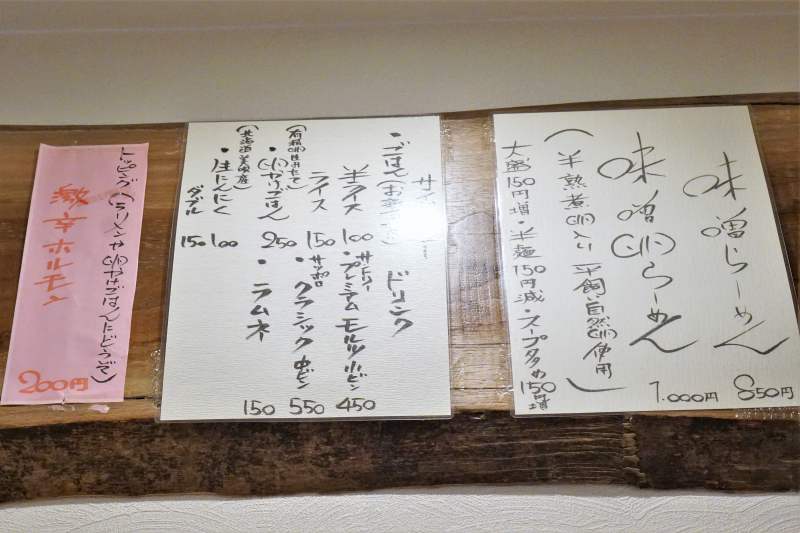 味噌らーめん 850円
味噌卵らーめん 1,000円
(半熟煮卵入り 平飼い自然卵使用)
大盛150円増・半麺150円減・スープ多め150円増
・ごはん
半ライス 100
ライス 150
・卵かけごはん 250
・生にんにく 100
ダブル 150
ドリンク
サントリー
・プレミアムモルツ小ビン 450
サッポロ
・クラシック中ビン 550
・ラムネ 150
トッピング(ラーメンや卵かけごはんにどうぞ)
激辛ホルモン
200円